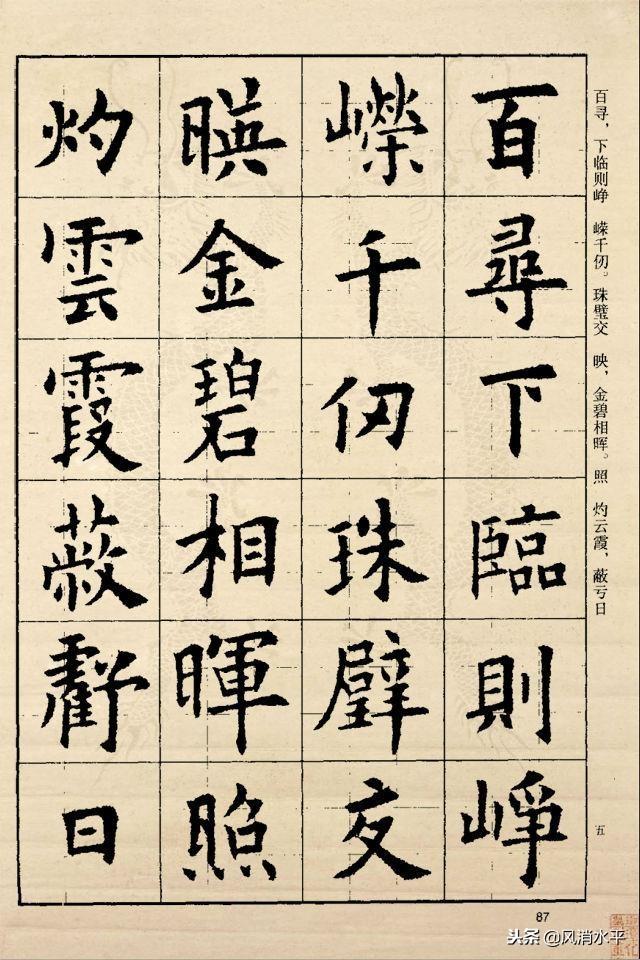 百寻，下临则峥　嵘千仞。珠璧交　映，金碧相晖。照　灼云霞，蔽亏日
五
百尋下臨則崢
嶸千仞珠璧交
暎金碧相暉照
灼雲霞蔽虧日
87
头条 @风消水平